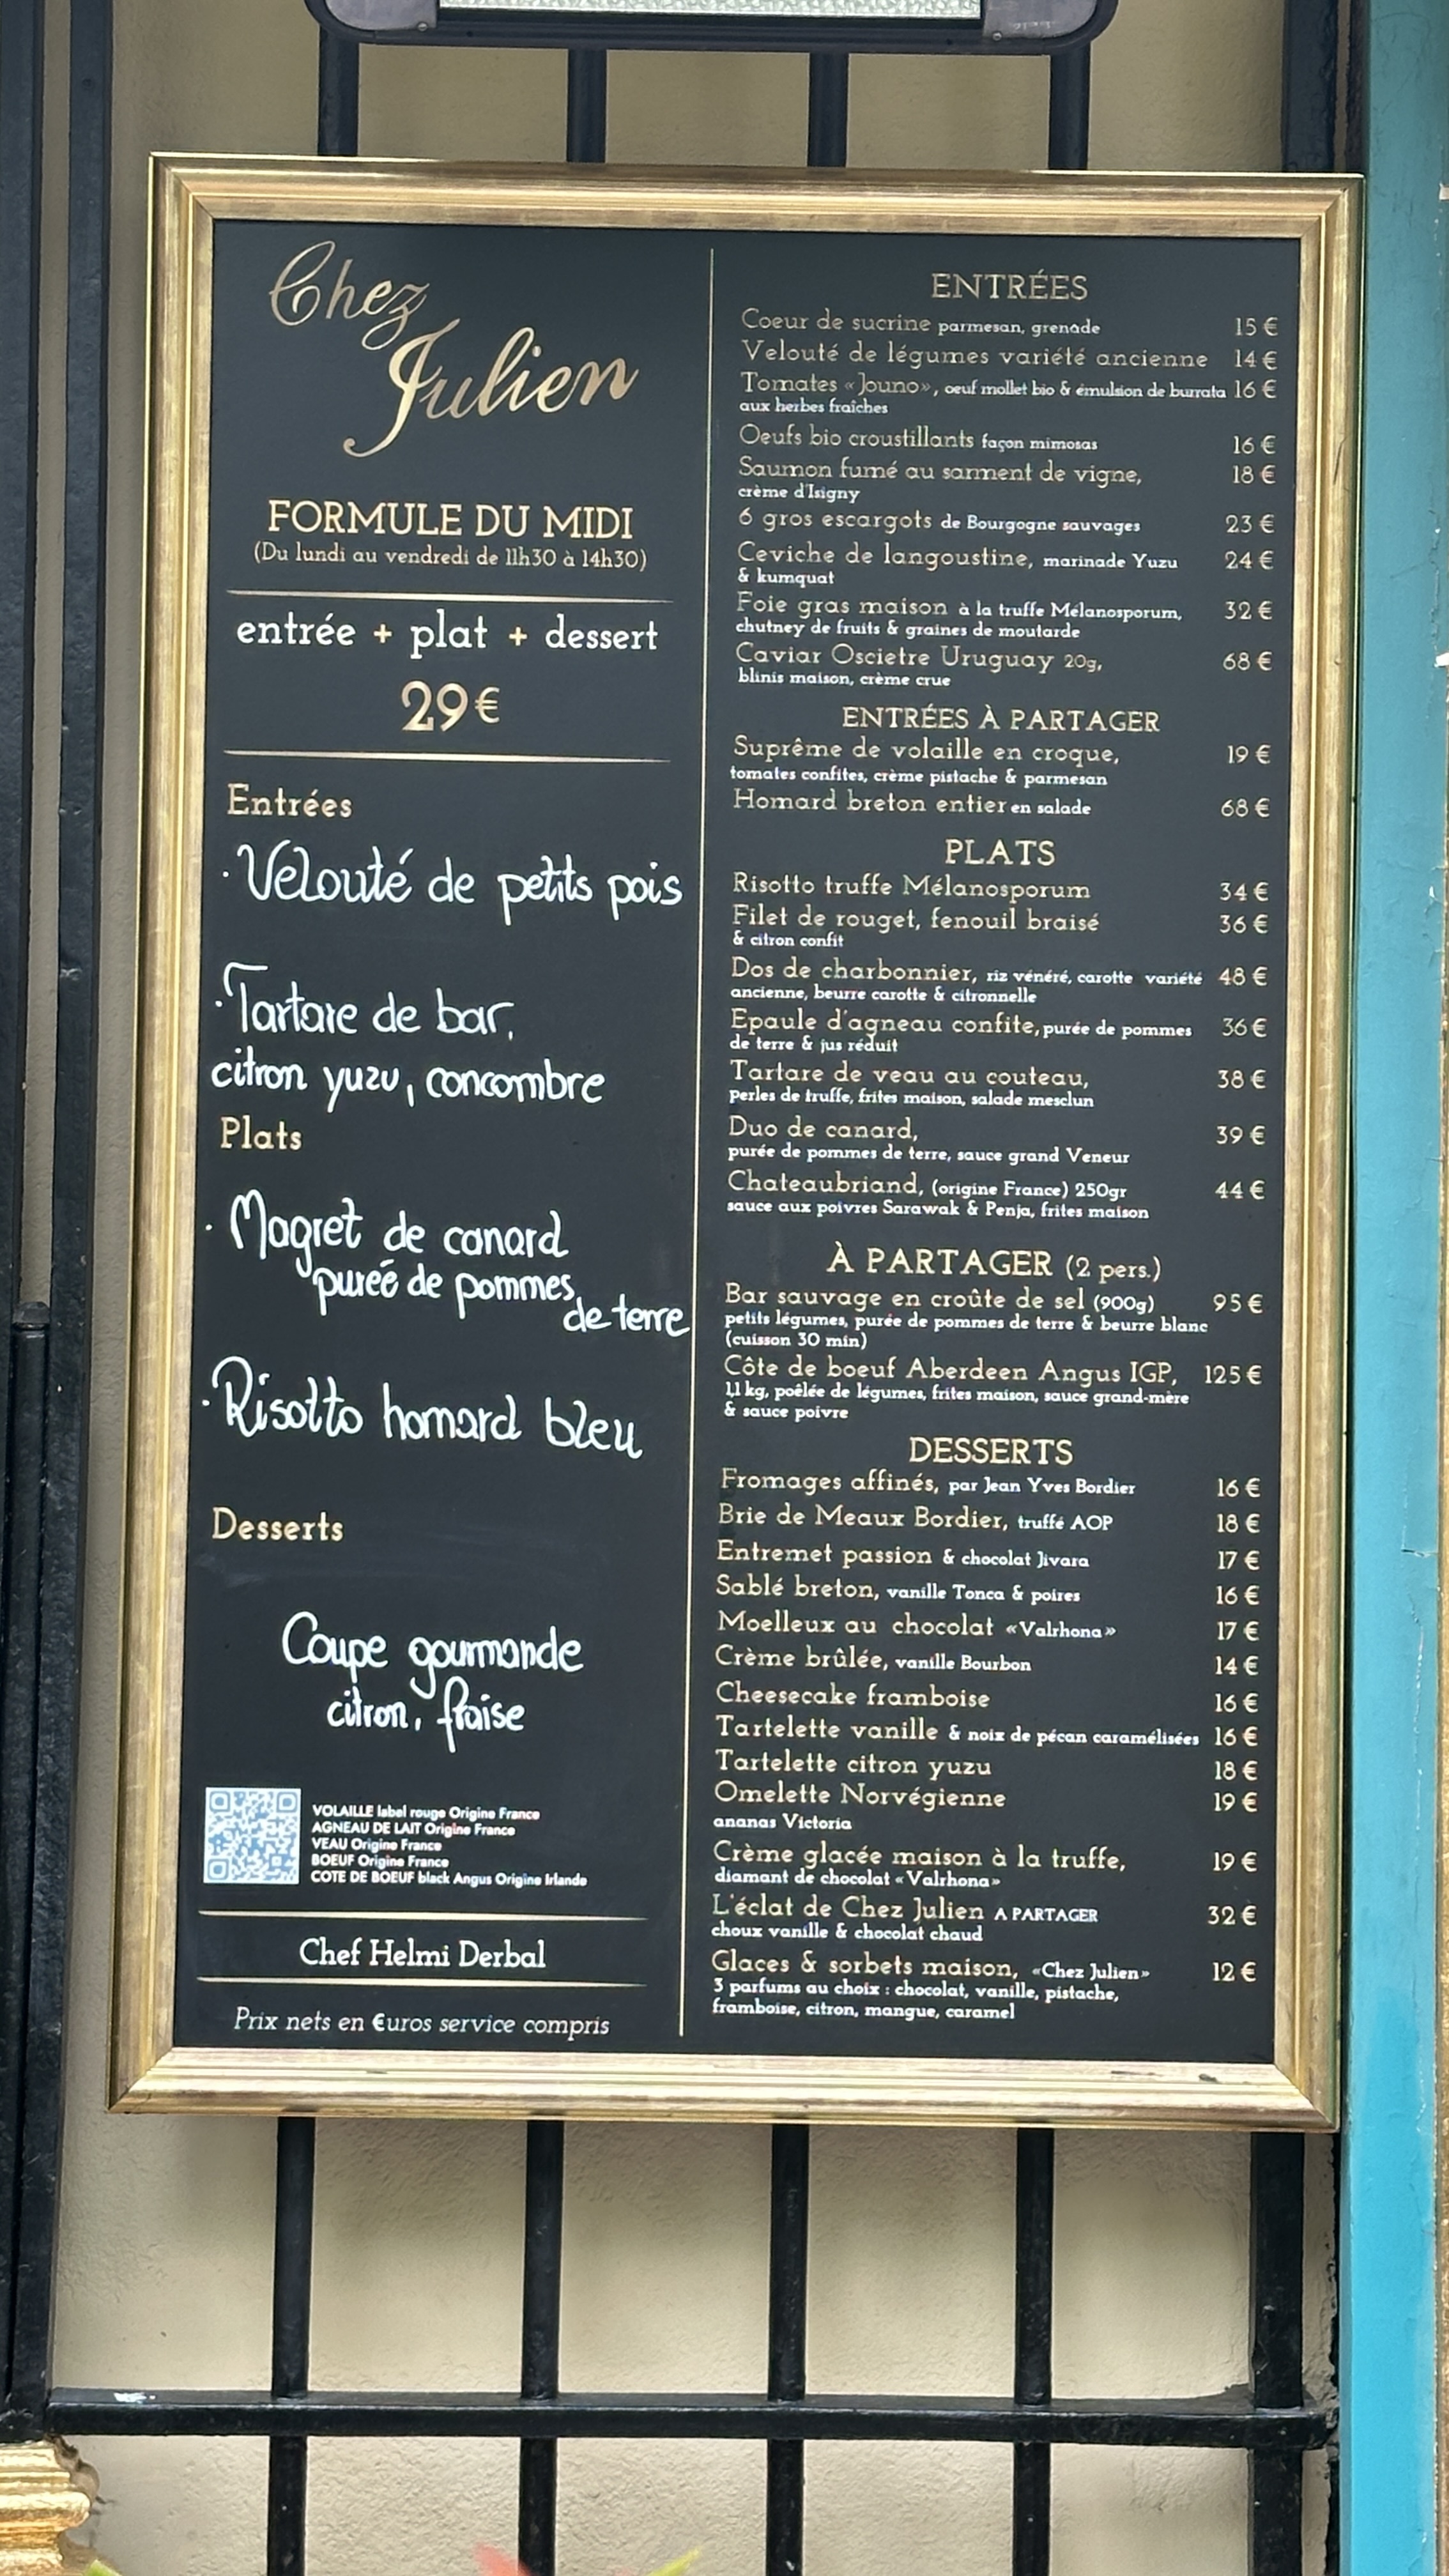 Chez
Julien
FORMULE DU MIDI
(Du lundi au vendredi de 11h30 à 14h30)
entrée + plat + dessert
29€
Entrées
· Velouté de petits pois
· Tartare de bar,
citron yuzu, concombre
Plats
· Magret de canard
pureé de pommes
de terre
· Risotto homard bleu
Desserts
Coupe gourmande
citron, fraise
VOLAILLE label rouge Origine France
AGNEAU DE LAIT Origine France
VEAU Origine France
BOEUF Origine France
COTE DE BOEUF black Angus Origine Irlande
Chef Helmi Derbal
Prix nets en €uros service compris
ENTRÉES
Coeur de sucrine parmesan, grenade 15 €
Velouté de légumes variété ancienne 14 €
Tomates «Jouno», oeuf mollet bio & émulsion de burrata 16 €
aux herbes fraîches
Oeufs bio croustillants façon mimosas 16 €
Saumon fumé au sarment de vigne, 18 €
crème d'Isigny
6 gros escargots de Bourgogne sauvages 23 €
Ceviche de langoustine, marinade Yuzu 24 €
& kumquat
Foie gras maison à la truffe Mélanosporum, 32 €
chutney de fruits & graines de moutarde
Caviar Oscietre Uruguay 20g, 68 €
blinis maison, crème crue
ENTRÉES À PARTAGER
Suprême de volaille en croque, 19 €
tomates confites, crème pistache & parmesan
Homard breton entier en salade 68 €
PLATS
Risotto truffe Mélanosporum 34 €
Filet de rouget, fenouil braisé 36 €
& citron confit
Dos de charbonnier, riz vénéré, carotte variété 48 €
ancienne, beurre carotte & citronnelle
Epaule d'agneau confite, purée de pommes 36 €
de terre & jus réduit
Tartare de veau au couteau, 38 €
perles de truffe, frites maison, salade mesclun
Duo de canard, 39 €
purée de pommes de terre, sauce grand Veneur
Chateaubriand, (origine France) 250gr 44 €
sauce aux poivres Sarawak & Penja, frites maison
À PARTAGER (2 pers.)
Bar sauvage en croûte de sel (900g) 95 €
petits légumes, purée de pommes de terre & beurre blanc
(cuisson 30 min)
Côte de boeuf Aberdeen Angus IGP, 125 €
1,1 kg, poêlée de légumes, frites maison, sauce grand-mère
& sauce poivre
DESSERTS
Fromages affinés, par Jean Yves Bordier 16 €
Brie de Meaux Bordier, truffé AOP 18 €
Entremet passion & chocolat Jivara 17 €
Sablé breton, vanille Tonca & poires 16 €
Moelleux au chocolat «Valrhona» 17 €
Crème brûlée, vanille Bourbon 14 €
Cheesecake framboise 16 €
Tartelette vanille & noix de pécan caramélisées 16 €
Tartelette citron yuzu 18 €
Omelette Norvégienne 19 €
ananas Victoria
Crème glacée maison à la truffe, 19 €
diamant de chocolat «Valrhona»
L'éclat de Chez Julien A PARTAGER 32 €
choux vanille & chocolat chaud
Glaces & sorbets maison, «Chez Julien» 12 €
3 parfums au choix : chocolat, vanille, pistache,
framboise, citron, mangue, caramel